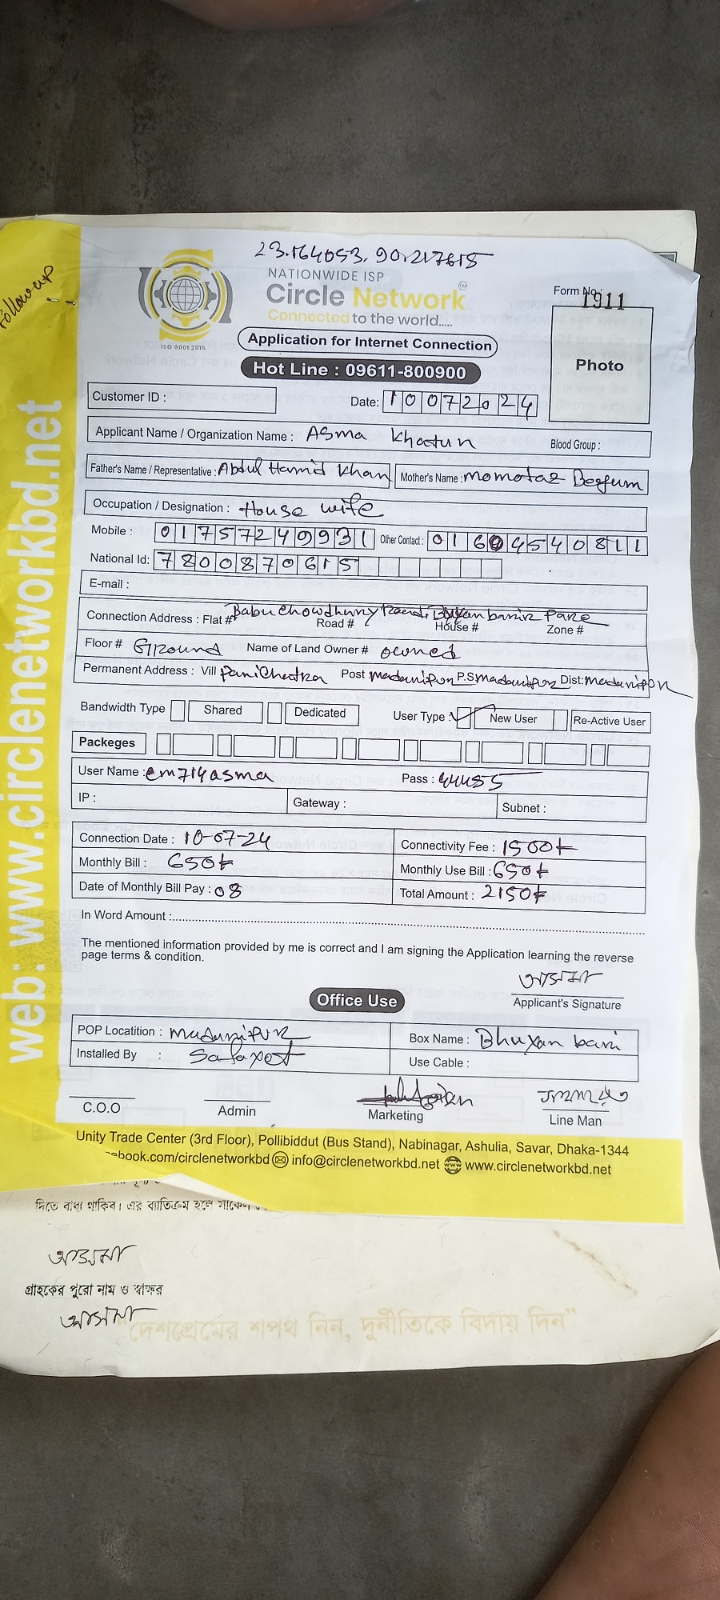 23.164053, 90.217615
Follow up
NATIONWIDE ISP
Circle Network
Connected to the world.....
ISO 9001:2015
Form No:
1911
Application for Internet Connection
Photo
Hot Line : 09611-800900
Customer ID :
Date: 10072024
Applicant Name / Organization Name : Asma Khatun Blood Group :
Father's Name / Representative : Abdul Hamid Khan Mother's Name : momotaz Begum
Occupation / Designation : House wife
Mobile : 01757249931 Other Contact : 01604540811
National Id: 7800870615
E-mail :
Connection Address : Flat # Babu Chowdhury Road, Road # House # Zone #
Floor # Ground Name of Land Owner # owned
Permanent Address : Vill Post madaripur P.S madaripur Dist: madaripur
Bandwidth Type Shared Dedicated User Type : New User Re-Active User
Packeges
User Name : em714asma Pass : 44455
IP : Gateway : Subnet :
Connection Date : 10-07-24 Connectivity Fee : 1500৳
Monthly Bill : 650৳ Monthly Use Bill : 650৳
Date of Monthly Bill Pay : 08 Total Amount : 2150৳
In Word Amount :
The mentioned information provided by me is correct and I am signing the Application learning the reverse
page terms & condition.
আসমা
Applicant's Signature
Office Use
POP Locatition : madaripur Box Name : Bhuyan bari
Installed By : Use Cable :
C.O.O Admin Marketing Line Man
Unity Trade Center (3rd Floor), Pollibiddut (Bus Stand), Nabinagar, Ashulia, Savar, Dhaka-1344
book.com/circlenetworkbd info@circlenetworkbd.net www.circlenetworkbd.net
web: www.circlenetworkbd.net
দিতে বাধ্য থাকিব। এর ব্যতিক্রম হলে
আসমা
গ্রাহকের পুরো নাম ও স্বাক্ষর
আসমা
"দেশপ্রেমের শপথ নিন, দুর্নীতিকে বিদায় দিন"